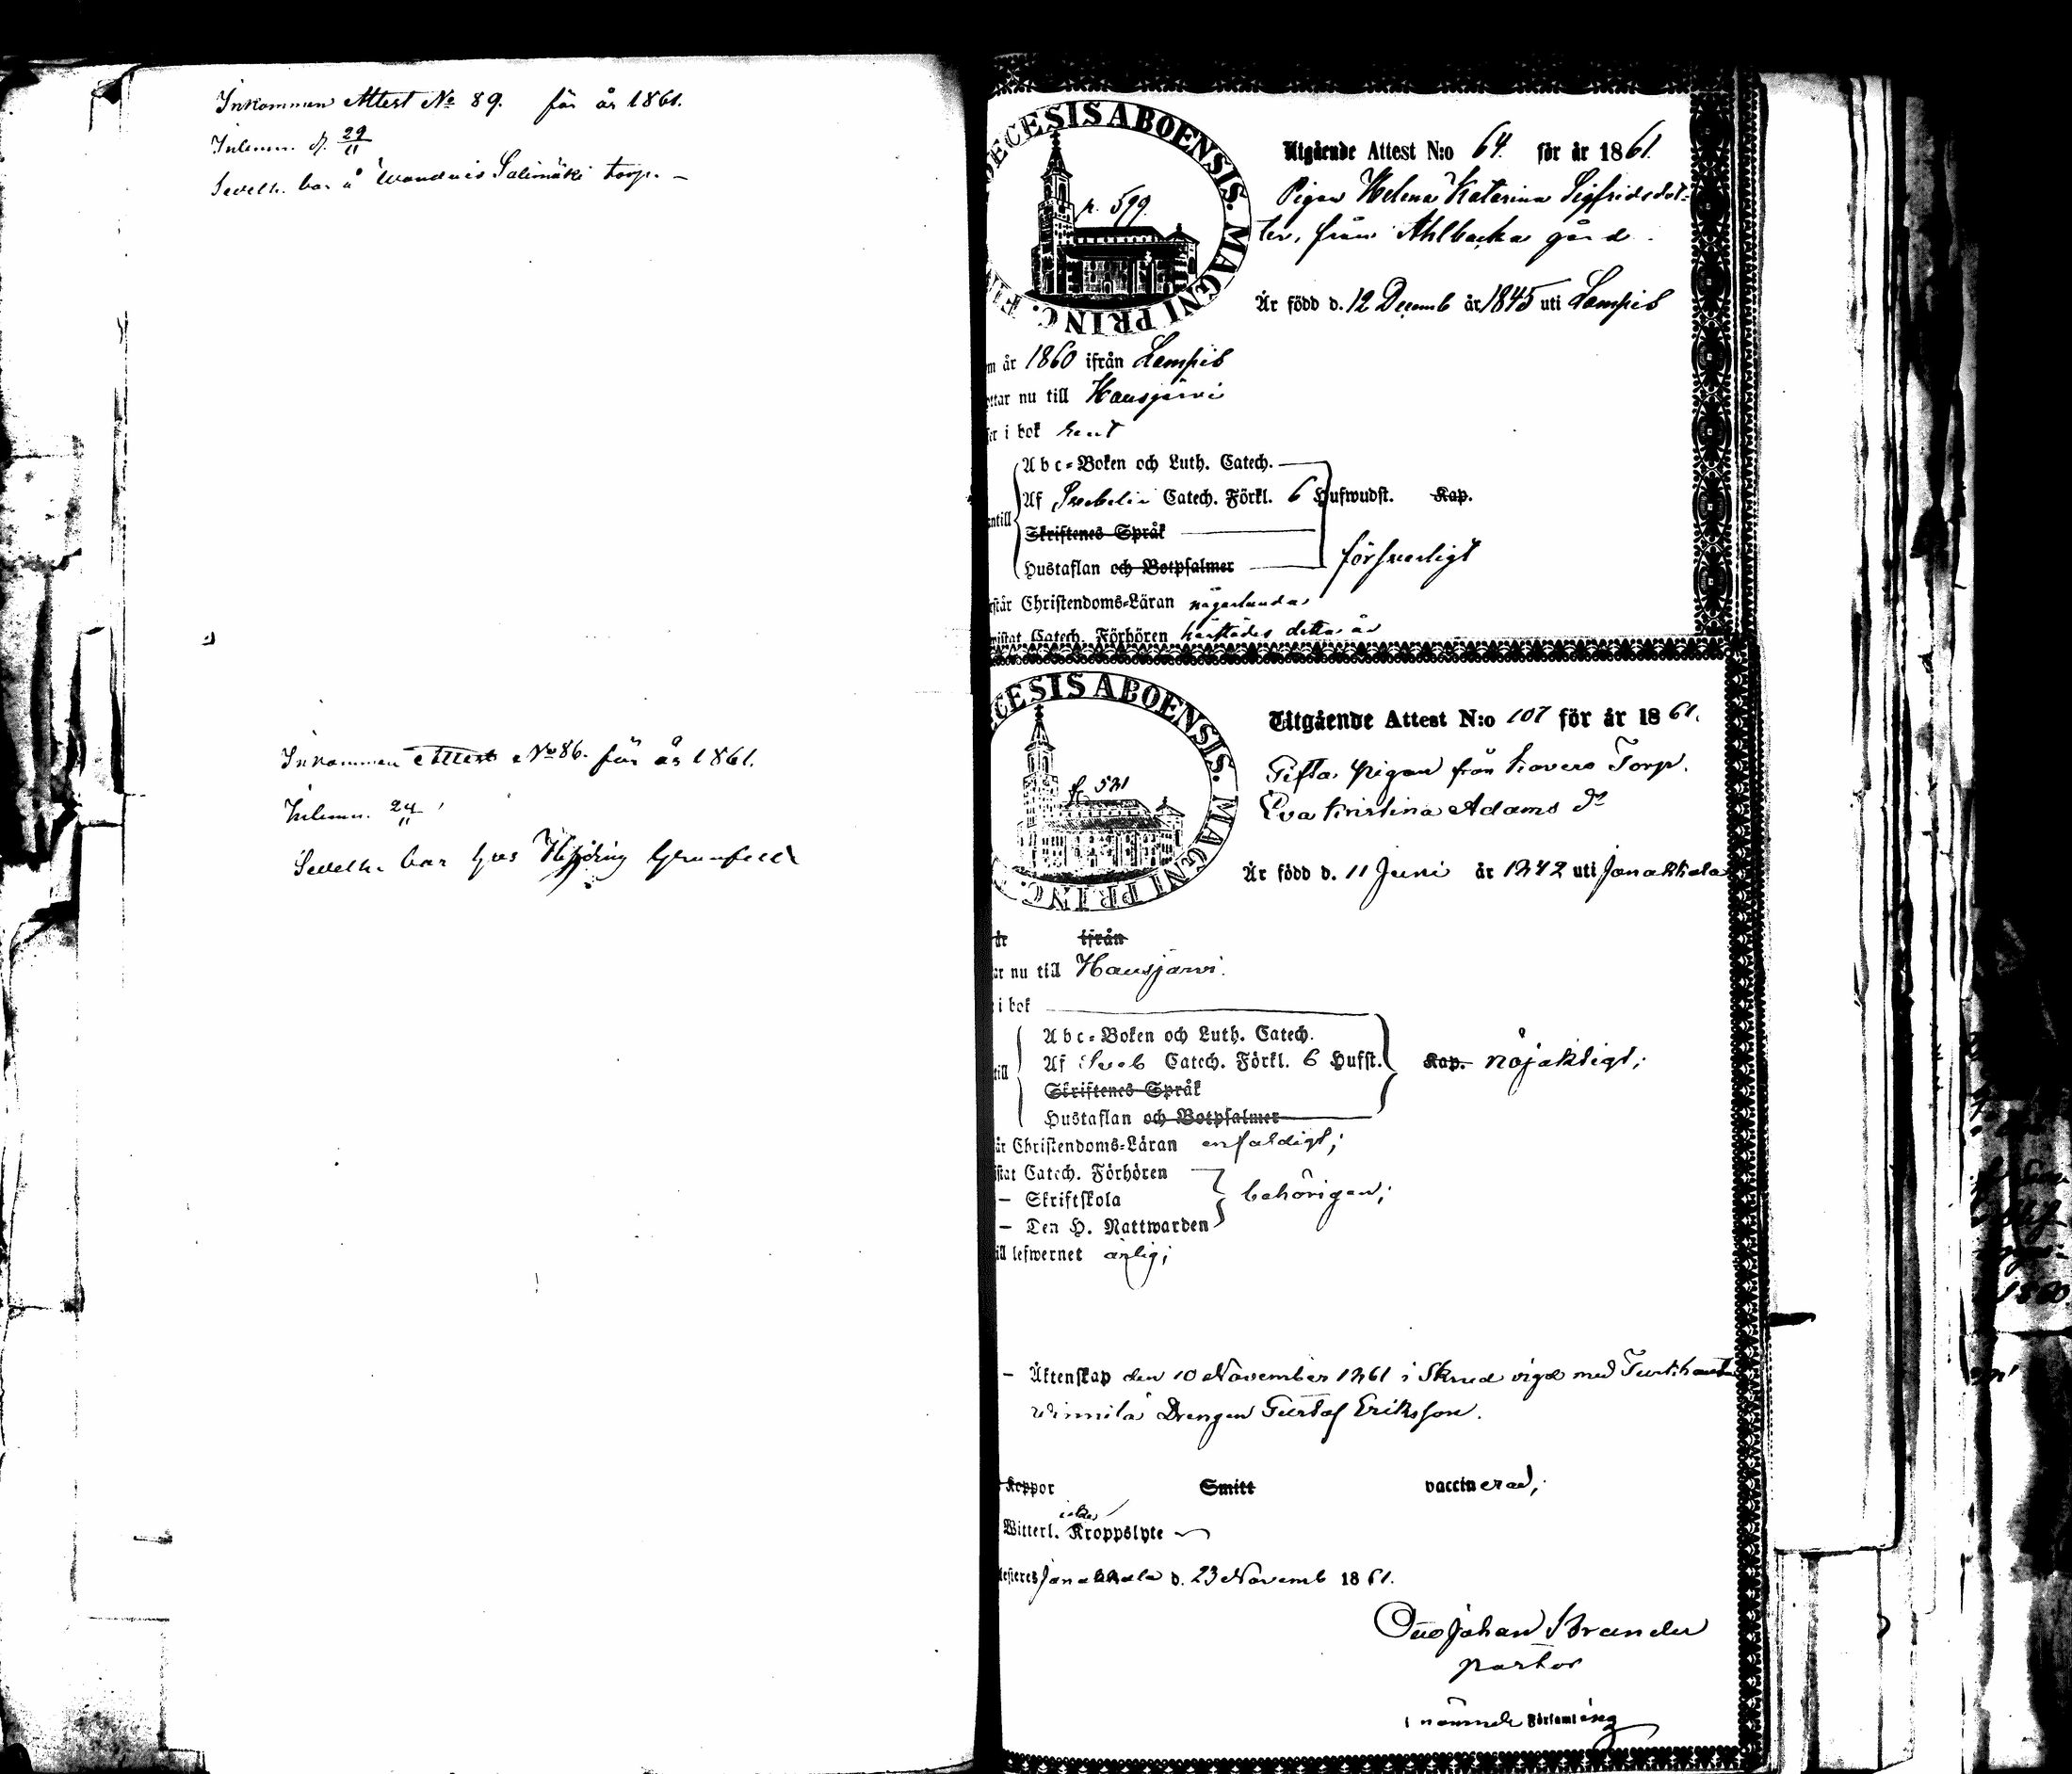 Inkommen Attest No 89. för år 1861.
Inlemn. d. 29/11
å Salimäki torp. –
Inkommen Attest No 86. för år 1861.
Inlemn. 24/11
bor hos
DIOECESIS ABOENSIS. MAGNI PRINC. FI
p. 599.
Utgående Attest N:o 64. för år 1861.
Pigan Helena Katarina Sigfridsdot-
ter, från Ahlbacka gård.
Är född d. 12 Decemb år 1845 uti Lampis
m år 1860 ifrån Lampis
ttar nu till Hausjärvi
ser i bok rent
Abc-Boken och Luth. Catech.
Af Svebelii Catech. Förkl. 6 Hufwudst. Kap.
ntill
Skriftenes Språk
Hustaflan och Botpsalmer försvarligt
rstår Christendoms-Läran någorlunda
wistat Catech. Förhören härstädes detta år
CESIS ABOENSIS. MAGNI PRINC.
p. 521
Utgående Attest N:o 107 för år 1861.
Gifta pigan från Torp.
Eva Kristina Adams dr
Är född d. 11 Juni år 1842 uti Janakkala
år ifrån
ar nu till Hausjärvi.
i bok
Abc-Boken och Luth. Catech.
till Af Sveb Catech. Förkl. 6 Hufst. Kap. nöjaktigt;
Skriftenes Språk
Hustaflan och Botpsalmer
år Christendoms-Läran enfaldigt;
istat Catech. Förhören
– Skriftskola behörigen;
– Den H. Nattwarden
ill lefwernet ärlig;
– Äktenskap den 10 November 1861 i Skrud vigd med
Winnilä Drengen Gustaf Eriksson.
Koppor Smitt vaccinerad;
icke
Witterl. Kroppslyte
testeres Janakkala d. 23 Novemb 1861.
Johan Brander
pastor
i nämnde Församling
1860.